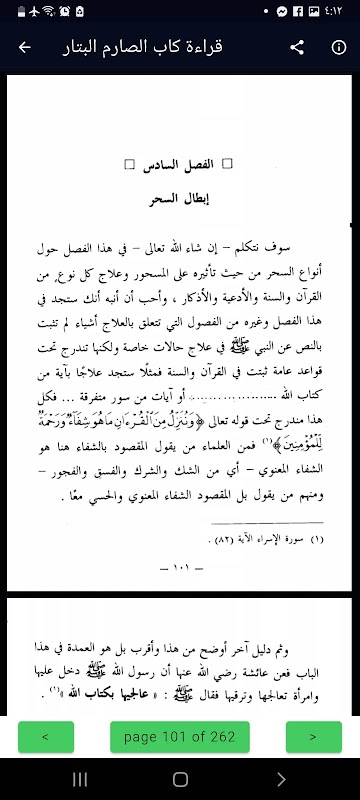 ٤:١٢
قراءة كاب الصارم البتار
□ الفصل السادس □
إبطال السحر
سوف نتكلم – إن شاء الله تعالى – في هذا الفصل حول
أنواع السحر من حيث تأثيره على المسحور وعلاج كل نوع من
القرآن والسنة والأدعية والأذكار ، وأحب أن أنبه أنك ستجد في
هذا الفصل وغيره من الفصول التي تتعلق بالعلاج أشياء لم تثبت
بالنص عن النبي ﷺ في علاج حالات خاصة ولكنها تندرج تحت
قواعد عامة ثبتت في القرآن والسنة فمثلًا ستجد علاجًا بآية من
كتاب الله .................... أو آيات من سور متفرقة ... فكل
هذا مندرج تحت قوله تعالى ﴿وَنُنَزِّلُ مِنَ ٱلْقُرْءَانِ مَا هُوَ شِفَآءٌ وَرَحْمَةٌ
لِّلْمُؤْمِنِينَ﴾(١) فمن العلماء من يقول المقصود بالشفاء هنا هو
الشفاء المعنوي – أي من الشك والشرك والفسق والفجور –
ومنهم من يقول بل المقصود الشفاء المعنوي والحسي معًا .
(١) سورة الإسراء الآية (٨٢) .
– ١٠١ –
وثم دليل آخر أوضح من هذا وأقرب بل هو العمدة في هذا
الباب فعن عائشة رضي الله عنها أن رسول الله ﷺ دخل عليها
وامرأة تعالجها وترقيها فقال ﷺ : « عالجيها بكتاب الله »(١) .
< page 101 of 262 >